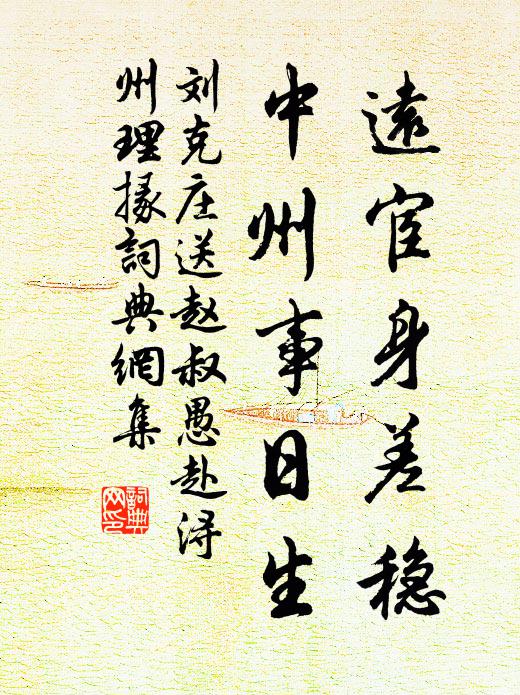 遠宦身差稳
中州事日生
刘克庄送赵叔愚赴浔
州理掾詞典網集
詞典
网印